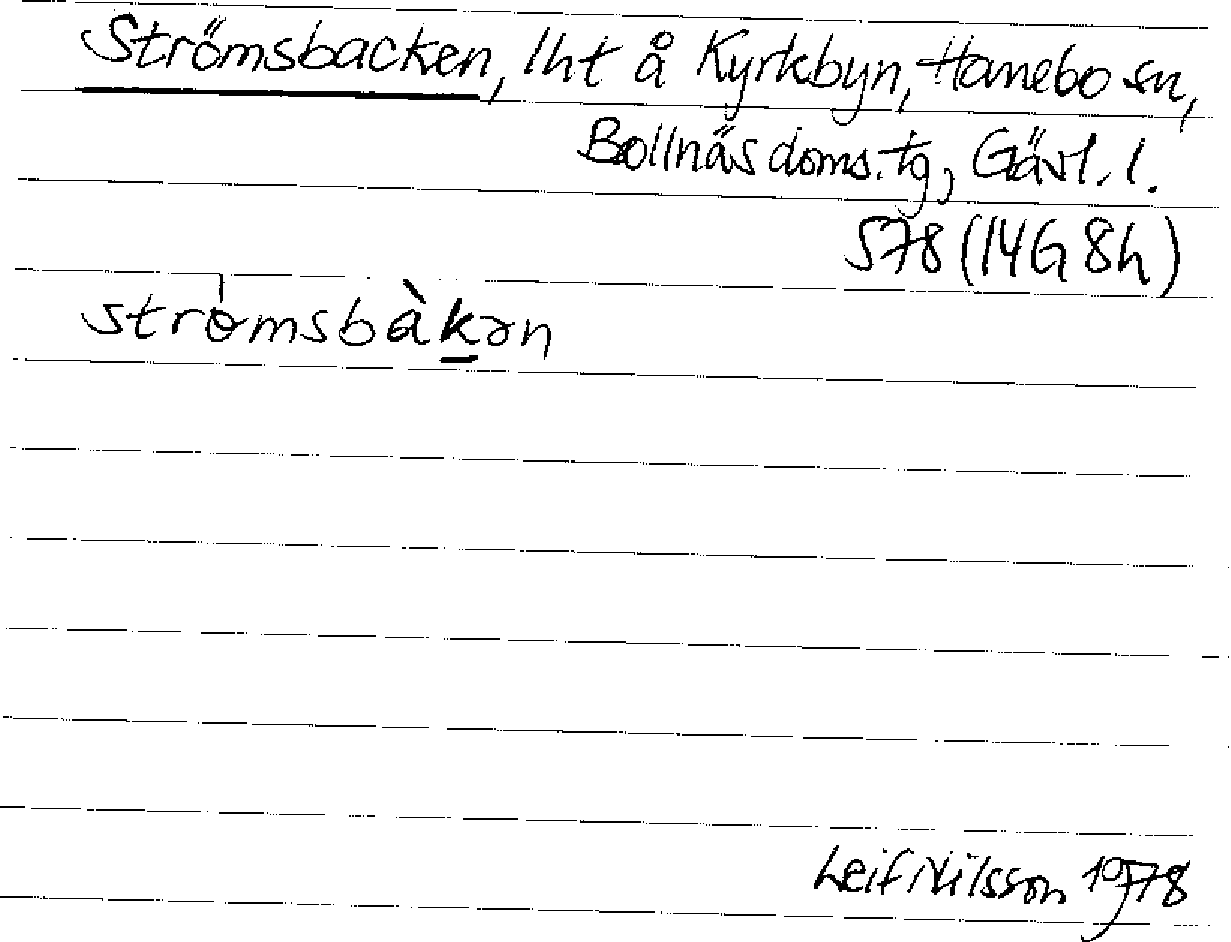 Strömsbacken, lht å Kyrkbyn, Hanebo sn,
Bollnäs doms.tg, Gävl. l.
S78 (14G 8h)
strömsbàkən
Leif Nilsson 1978